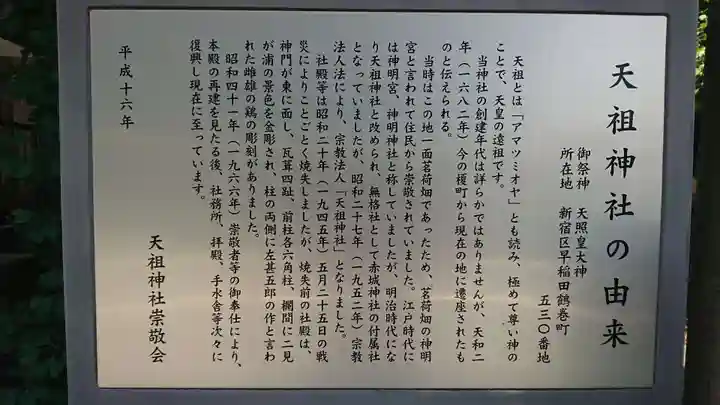 天祖神社の由来
御祭神　天照皇大神
所在地　新宿区早稲田鶴巻町
五三〇番地
天祖とは「アマツミオヤ」とも読み、極めて尊い神の
ことで、天皇の遠祖です。
当神社の創建年代は詳らかではありませんが、天和二
年（一六八二年）今の榎町から現在の地に遷座されたも
のと伝えられる。
当時はこの地一面茗荷畑であったため、茗荷畑の神明
宮と言われて住民から崇敬されていました。江戸時代に
は神明宮、神明神社と称していましたが、明治時代にな
り天祖神社と改められ、無格社として赤城神社の付属社
となっていましたが、昭和二十七年（一九五二年）宗教
法人法により、宗教法人「天祖神社」となりました。
社殿等は昭和二十年（一九四五年）五月二十五日の戦
災によりことごとく焼失しましたが、焼失前の社殿は、
神門が東に面し、瓦葺四趾、前柱各六角柱、欄間に二見
が浦の景色を金彫され、柱の両側に左甚五郎の作と言わ
れた雌雄の鶏の彫刻がありました。
昭和四十一年（一九六六年）崇敬者等の御奉仕により、
本殿の再建を見たる後、社務所、拝殿、手水舎等次々に
復興し現在に至っています。
平成十六年
天祖神社崇敬会